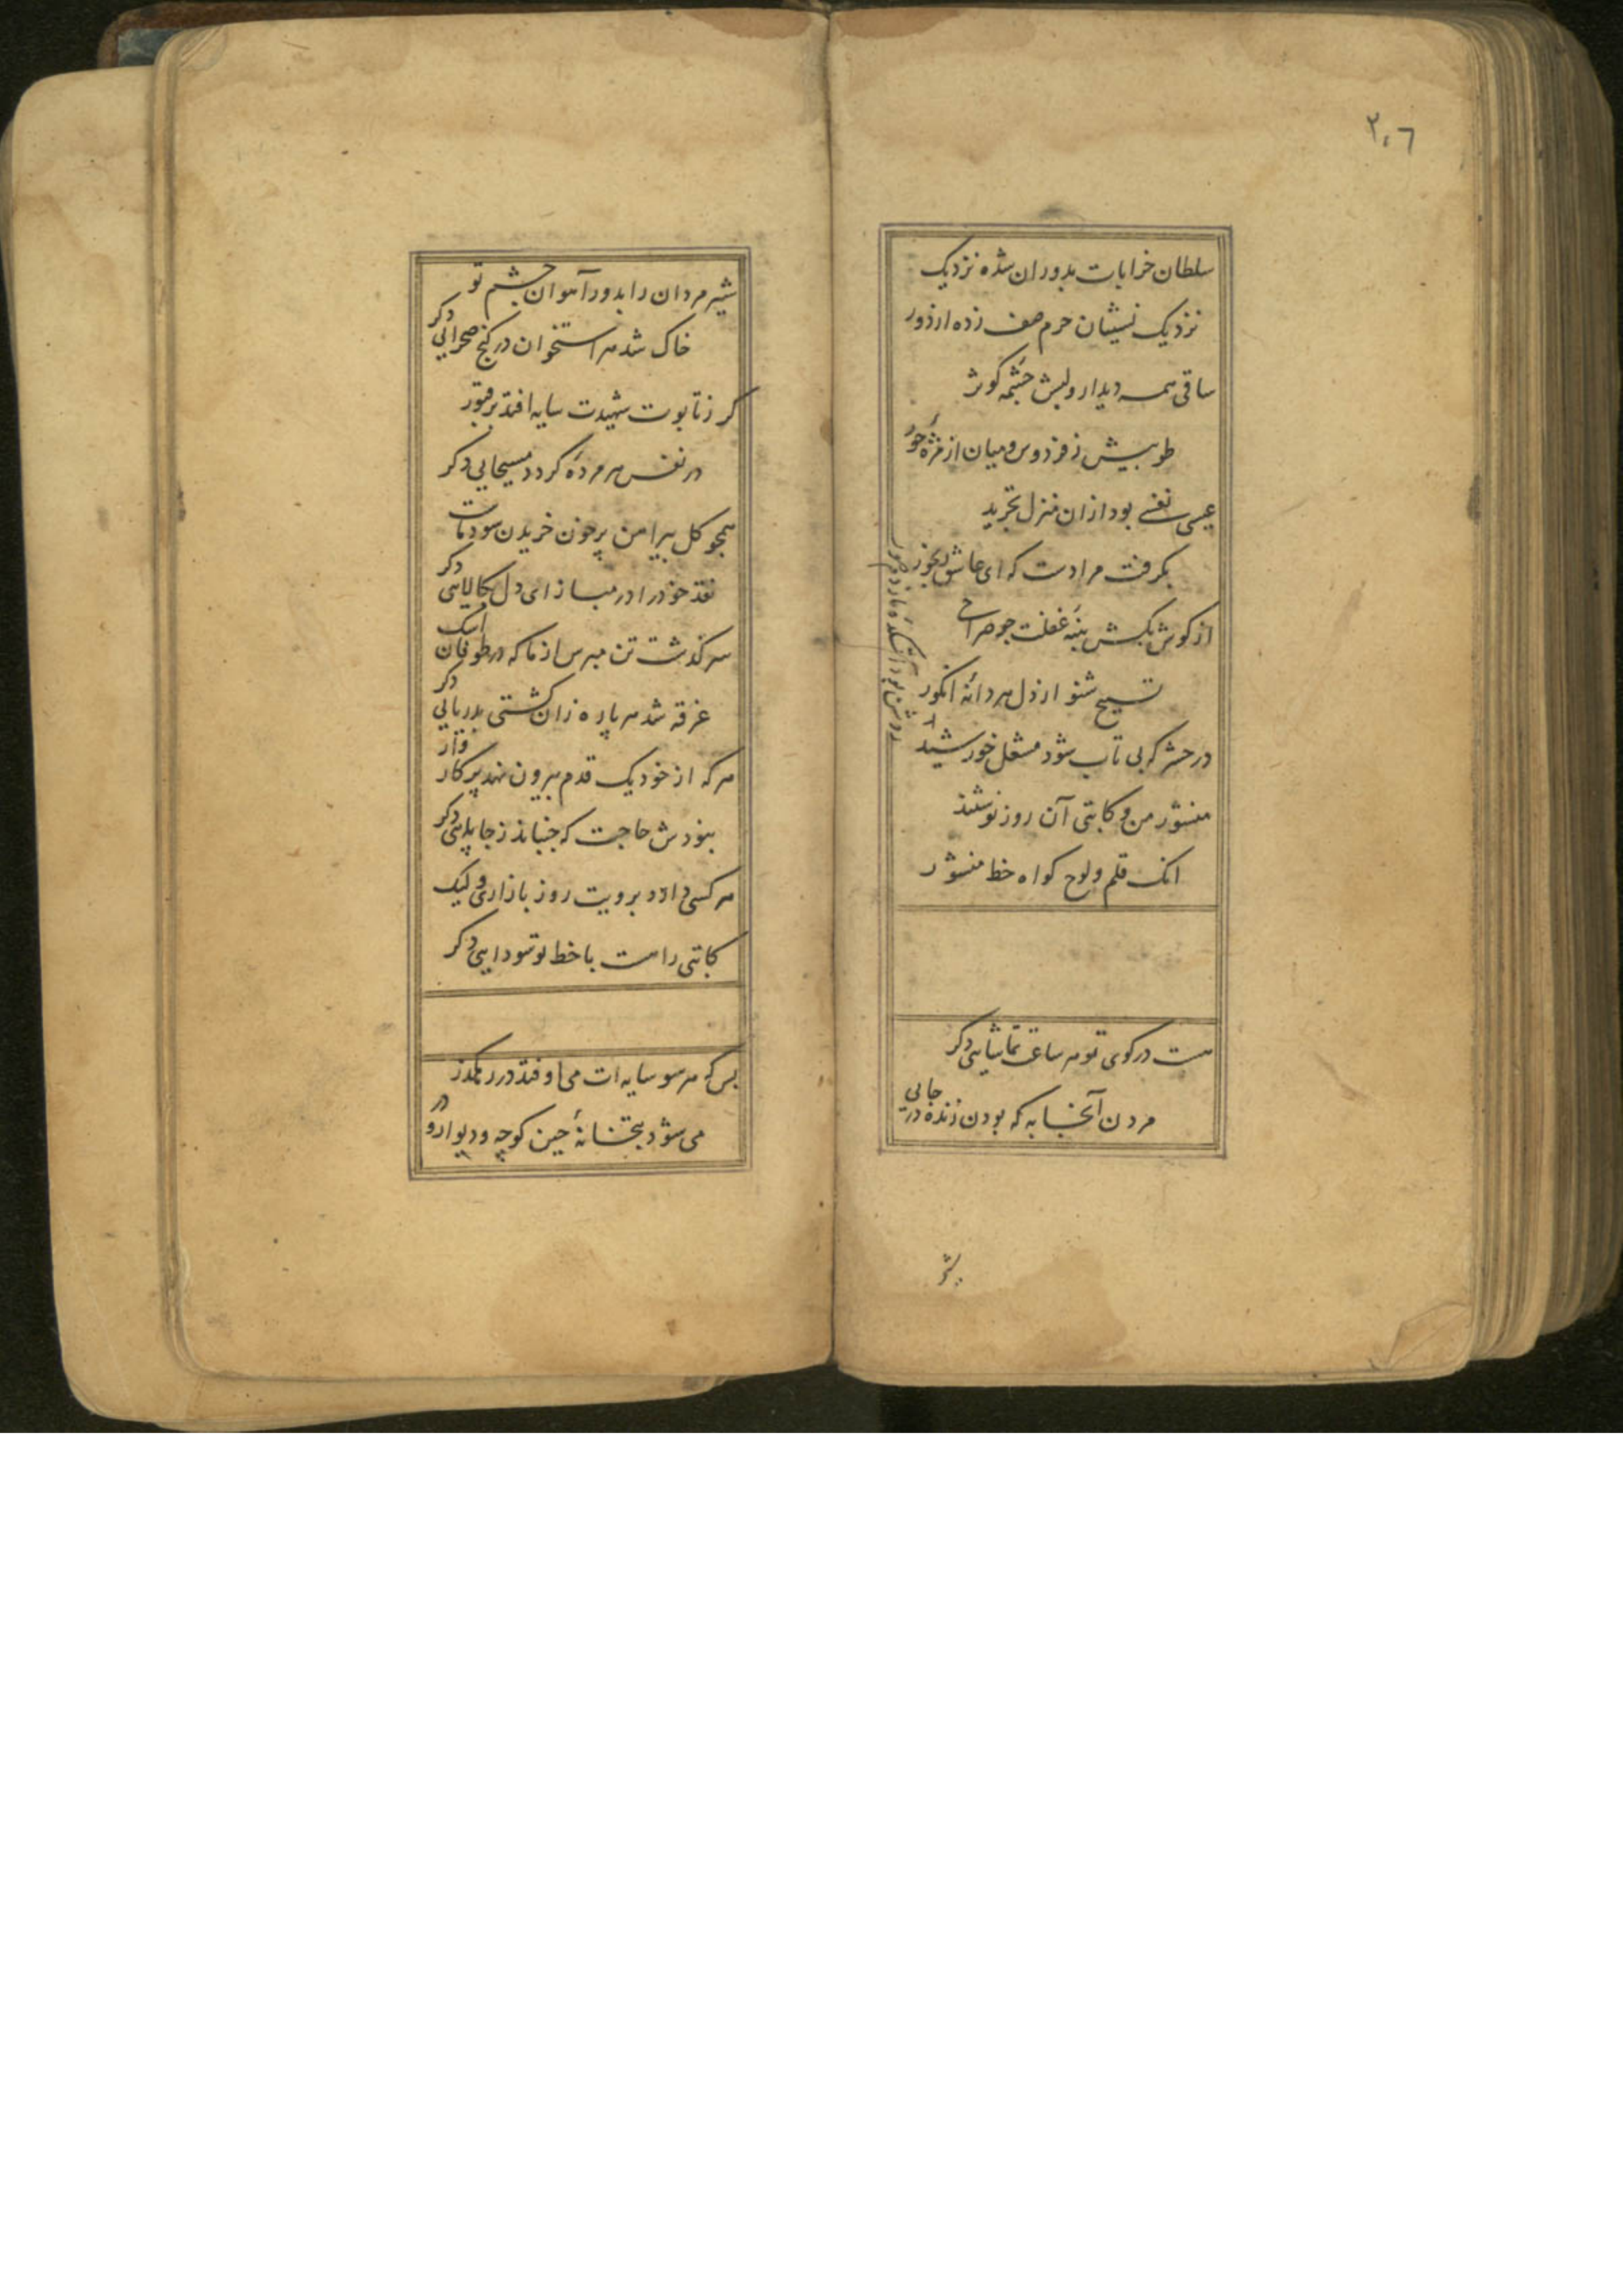 ۲۰٦
سلطان خرابات بدوران شده نزدیک
نزدیک نشینان حرم صف زده از دور
ساقی همه دیدار و لبش چشمه کوثر
طوبیش ز فردوس و میان از مژه حور
عیسی نفسی بود از ان منزل تجرید
بکرفت مرا دست که ای عاشق
از کوش بکش پنبه غفلت جو صراحی
تسبیح شنو از دل هر دانه انکور
در حشر که بی تاب شود مشعل خورشید
روشن بود آتشکده ما ز دم صور
منشور من و کاتبی آن روز نویسند
انک قلم و لوح کواه خط منشور
هست در کوی تو هر ساعت تماشایی دکر
مردن آنجا به که بودن زنده در جایی
شیر
شیر مردان را بدور آهوان چشم تو
خاک شد هر استخوان در کنج صحرایی دکر
کر ز تابوت شهیدت سایه افتد بر قبور
در نفس هر مرده کردد مسیحایی دکر
همچو کل پیراهن پر خون خریدن سود ماست
نقد خود را در مباز ای دل بکالایی دکر
سرکذشت تن مپرس از ما که در طوفان اشک
غرقه شد هر پاره زان کشتی بدریایی دکر
هر که از خود یک قدم بیرون نهد پرکار وار
نبودش حاجت که جنباند ز جا پایی دکر
هر کسی دارد برویت روز بازاری ولیک
کاتبی را هست با خط تو سودایی دکر
بس که هر سو سایه ات می اوفتد در رهکذر
می شود بتخانه چین کوچه و دیوار و در